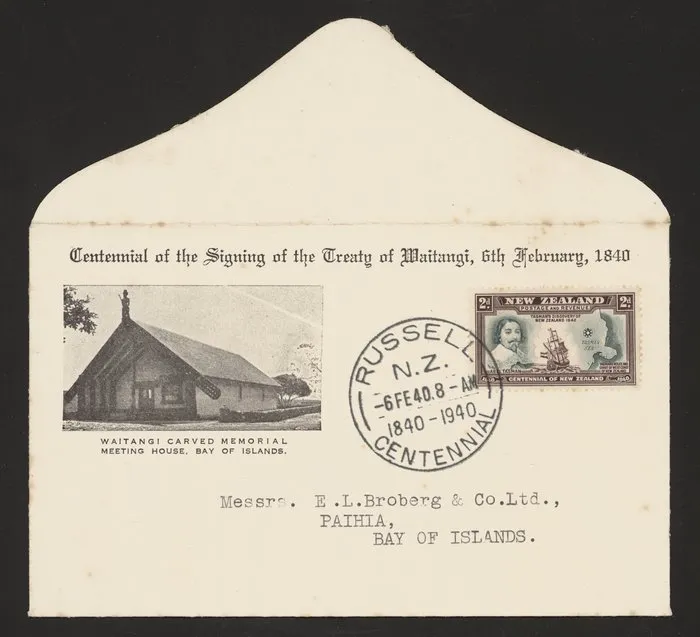 Centennial of the Signing of the Treaty of Waitangi, 6th February, 1840
WAITANGI CARVED MEMORIAL
MEETING HOUSE, BAY OF ISLANDS.
RUSSELL
N.Z.
-6FE40.8-AM
1840-1940
CENTENNIAL
2D NEW ZEALAND 2D
POSTAGE AND REVENUE
TASMAN'S DISCOVERY OF
NEW ZEALAND 1642
1940 CENTENNIAL OF NEW ZEALAND 1940
Messrs. E.L.Broberg & Co.Ltd.,
PAIHIA,
BAY OF ISLANDS.